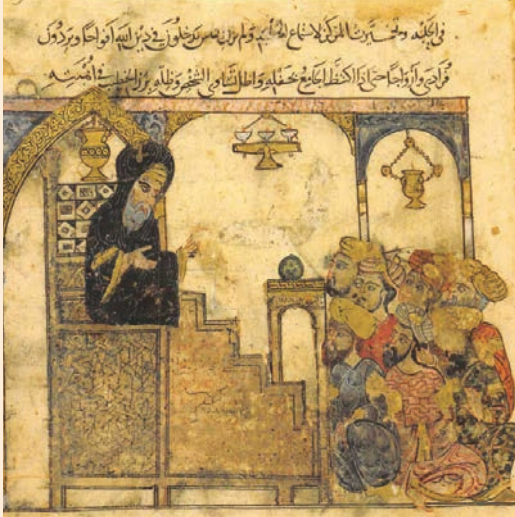 في الحلبة وتخيرت المركز لاستماع الخطبة ولم يزل الناس يدخلون في دين الله افواجا ويردون
فرادى وازواجا حتى اذا اكتظ الجامع بحفله واظل تساوي الشخص وظله برز الخطيب في اهبته